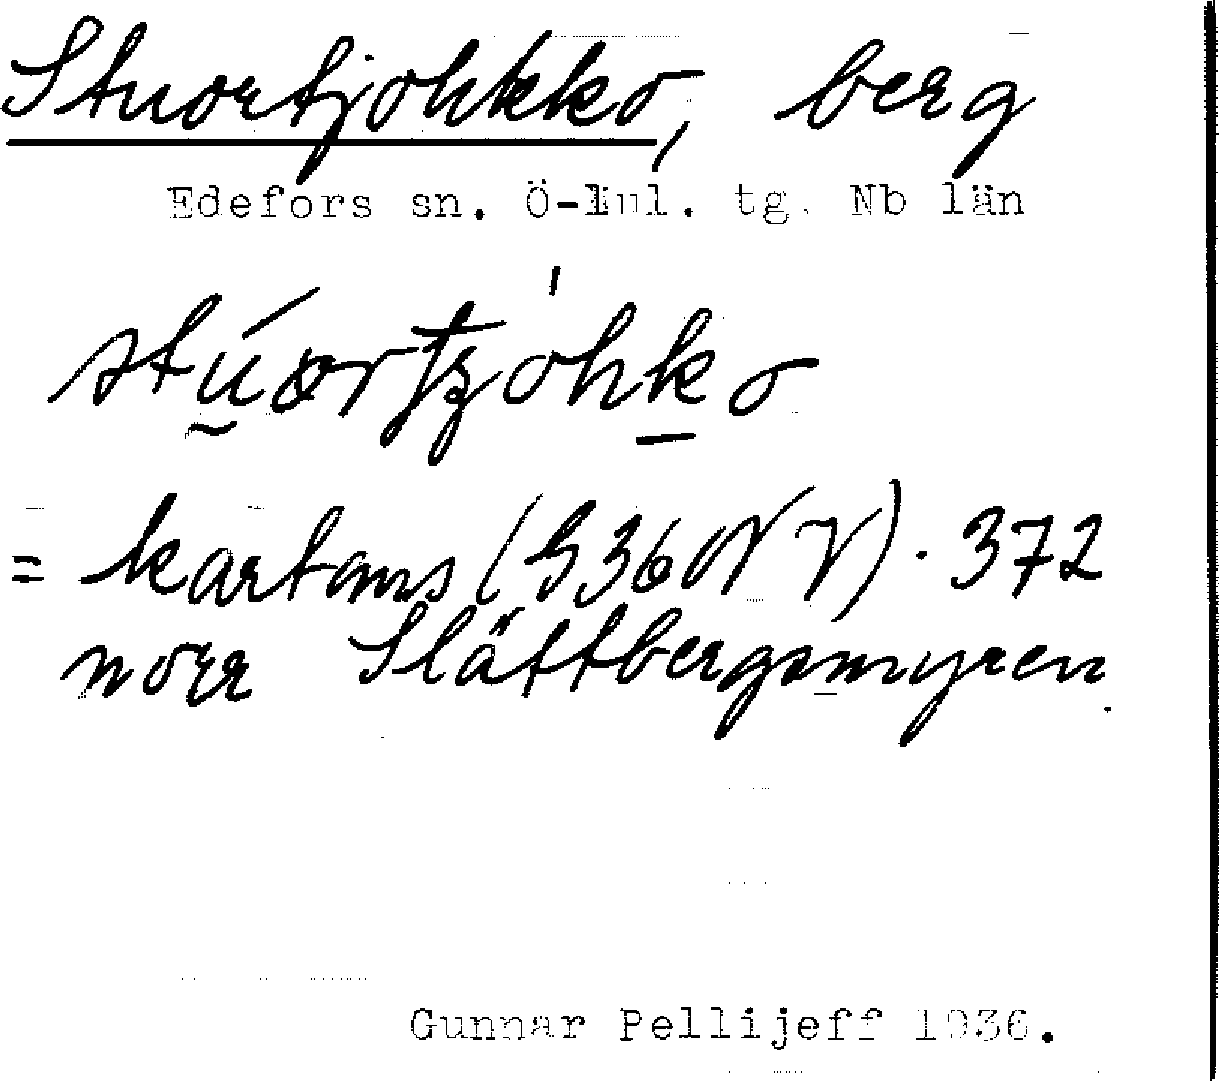 Stuortjohkko, berg
Edefors sn. Ö-Lul. tg. Nb län
= kartans (S36NV) · 372
norr Slättbergsmyren.
Gunnar Pellijeff 1936.